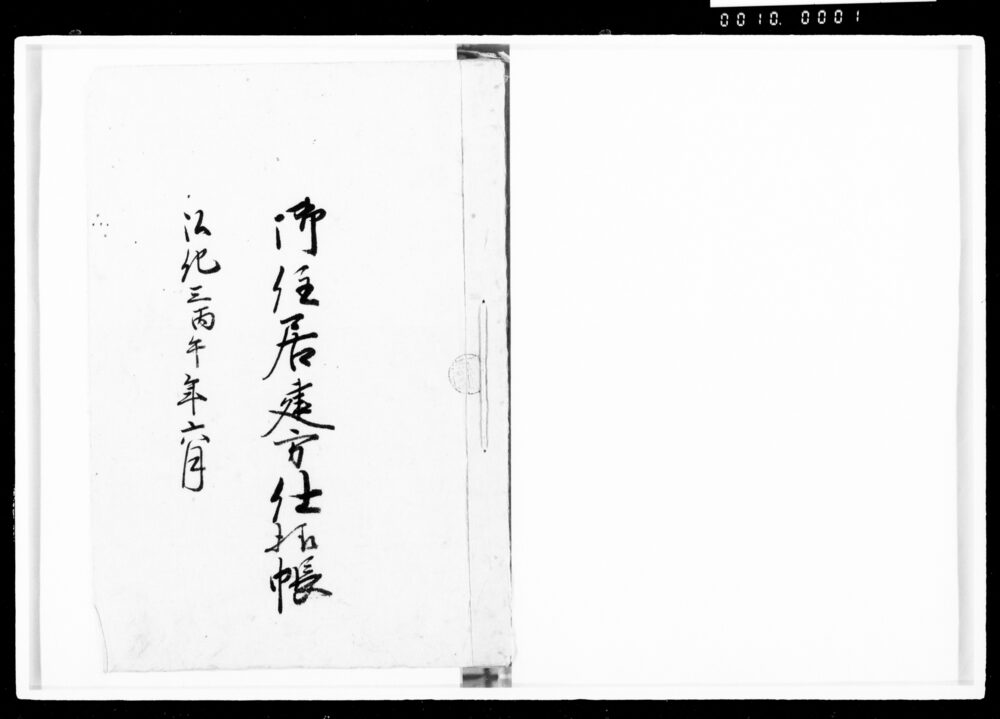 0010. 0001
御住居建方仕拍帳
弘化三丙午年六月